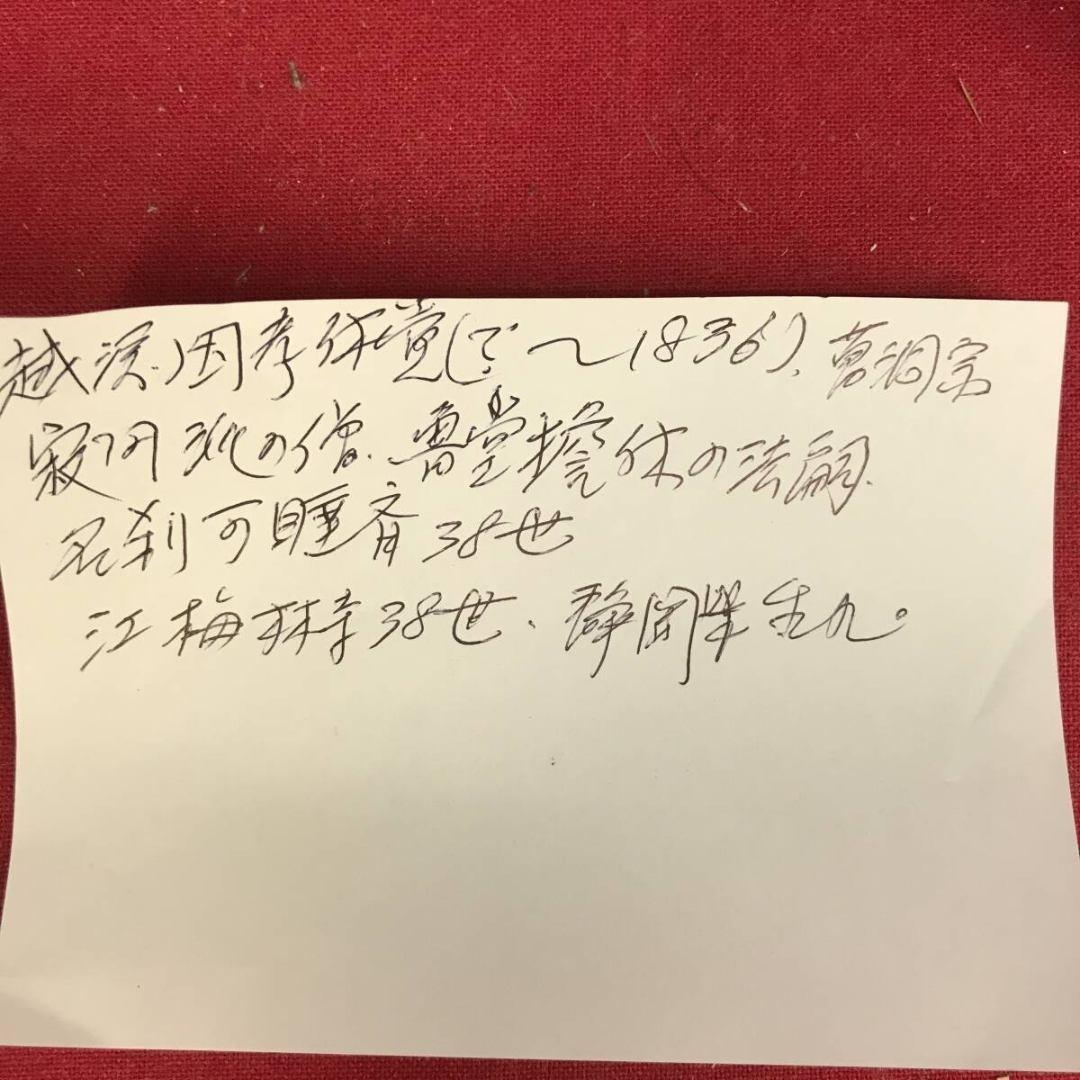 越渓、因孝休覚(?~1836)、曹洞宗
寂円派の僧、魯堂擔休の法嗣、
名刹可睡斉38世
江梅林寺38世、静岡県生れ。